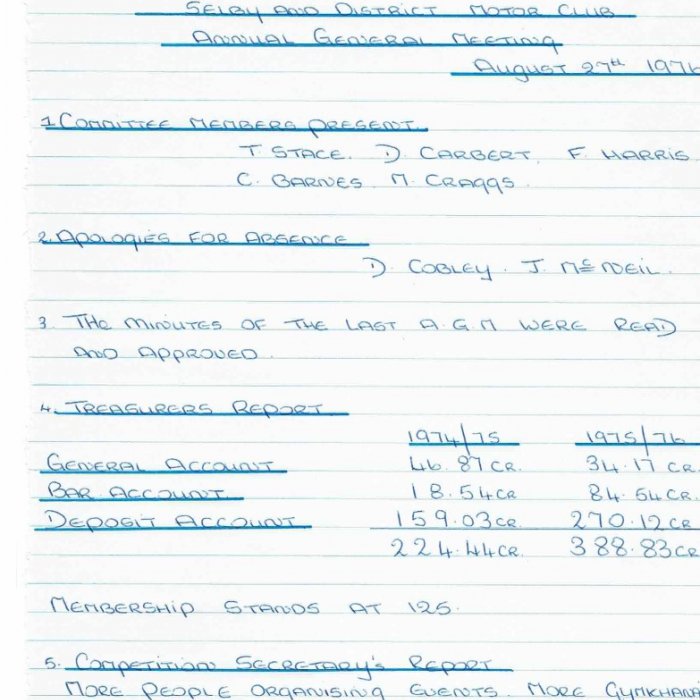 SELBY AND DISTRICT MOTOR CLUB
ANNUAL GENERAL MEETING
AUGUST 27th 1976
1. COMMITTEE MEMBERS PRESENT.
T. STACE. D. CARBERT. F. HARRIS
C. BARNES. M. CRAGGS.
2. APOLOGIES FOR ABSENCE
D. COBLEY. J. McNEIL.
3. THE MINUTES OF THE LAST A.G.M WERE READ
AND APPROVED.
4. TREASURERS REPORT
1974/75 1975/76
GENERAL ACCOUNT 46.87 CR. 34.17 CR.
BAR ACCOUNT 18.54 CR 84.54 CR
DEPOSIT ACCOUNT 159.03 CR 270.12 CR
224.44 CR. 388.83 CR
MEMBERSHIP STANDS AT 125.
5. COMPETITION SECRETARY'S REPORT
MORE PEOPLE ORGANISING EVENTS MORE GYMKHAN